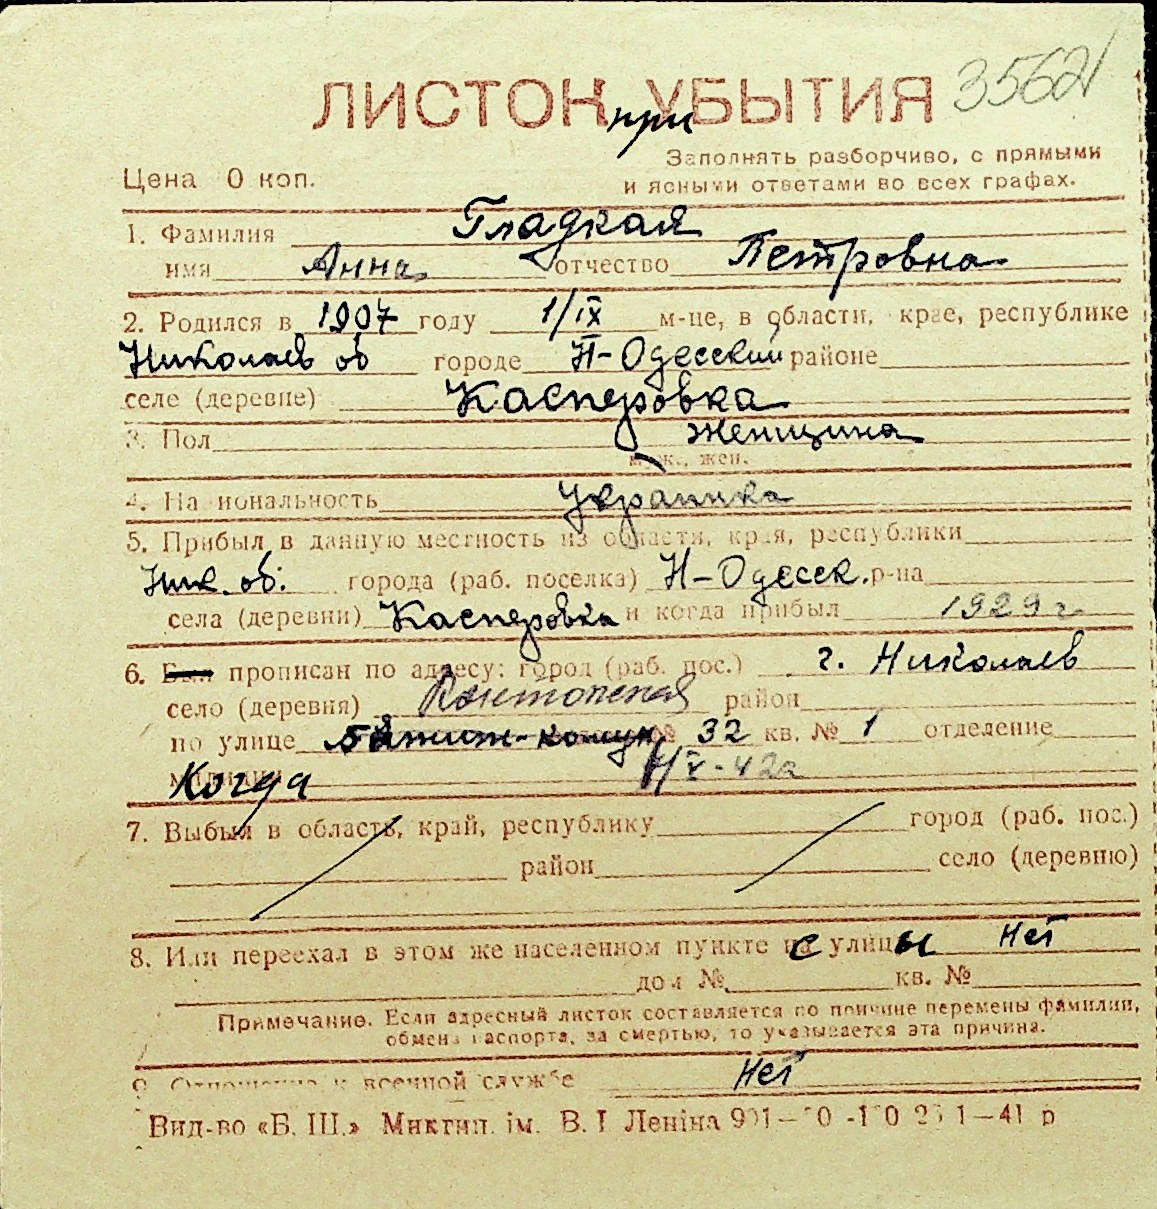 35621
ЛИСТОК УБЫТИЯ
при
Заполнять разборчиво, с прямыми
Цена 0 коп.
и ясными ответами во всех графах.
1. Фамилия Гладкая
имя Анна отчество Петровна
2. Родился в 1907 году 1/IX м-це, в области, крае, республике
Николаев об городе Н-Одесский районе
селе (деревне) Касперовка
3. Пол женщина
муж., жен.
4. Национальность Украинка
5. Прибыл в данную местность из области, края, республики
Ник. об. города (раб. поселка) Н-Одесск. р-на
села (деревни) Касперовка и когда прибыл 1929 г
6. Был прописан по адресу: город (раб. пос.) г. Николаев
село (деревня) район
по улице № 32 кв. № 1 отделение
милиции Когда
7. Выбыл в область, край, республику город (раб. пос.)
район село (деревню)
8. Или переехал в этом же населенном пункте с улицы Нет
дом № кв. №
Примечание. Если адресный листок составляется по причине перемены фамилии,
обмена паспорта, за смертью, то указывается эта причина.
9. Отношение к военной службе Нет
Вид-во «Б. Ш.» Миктип. ім. В. І Леніна